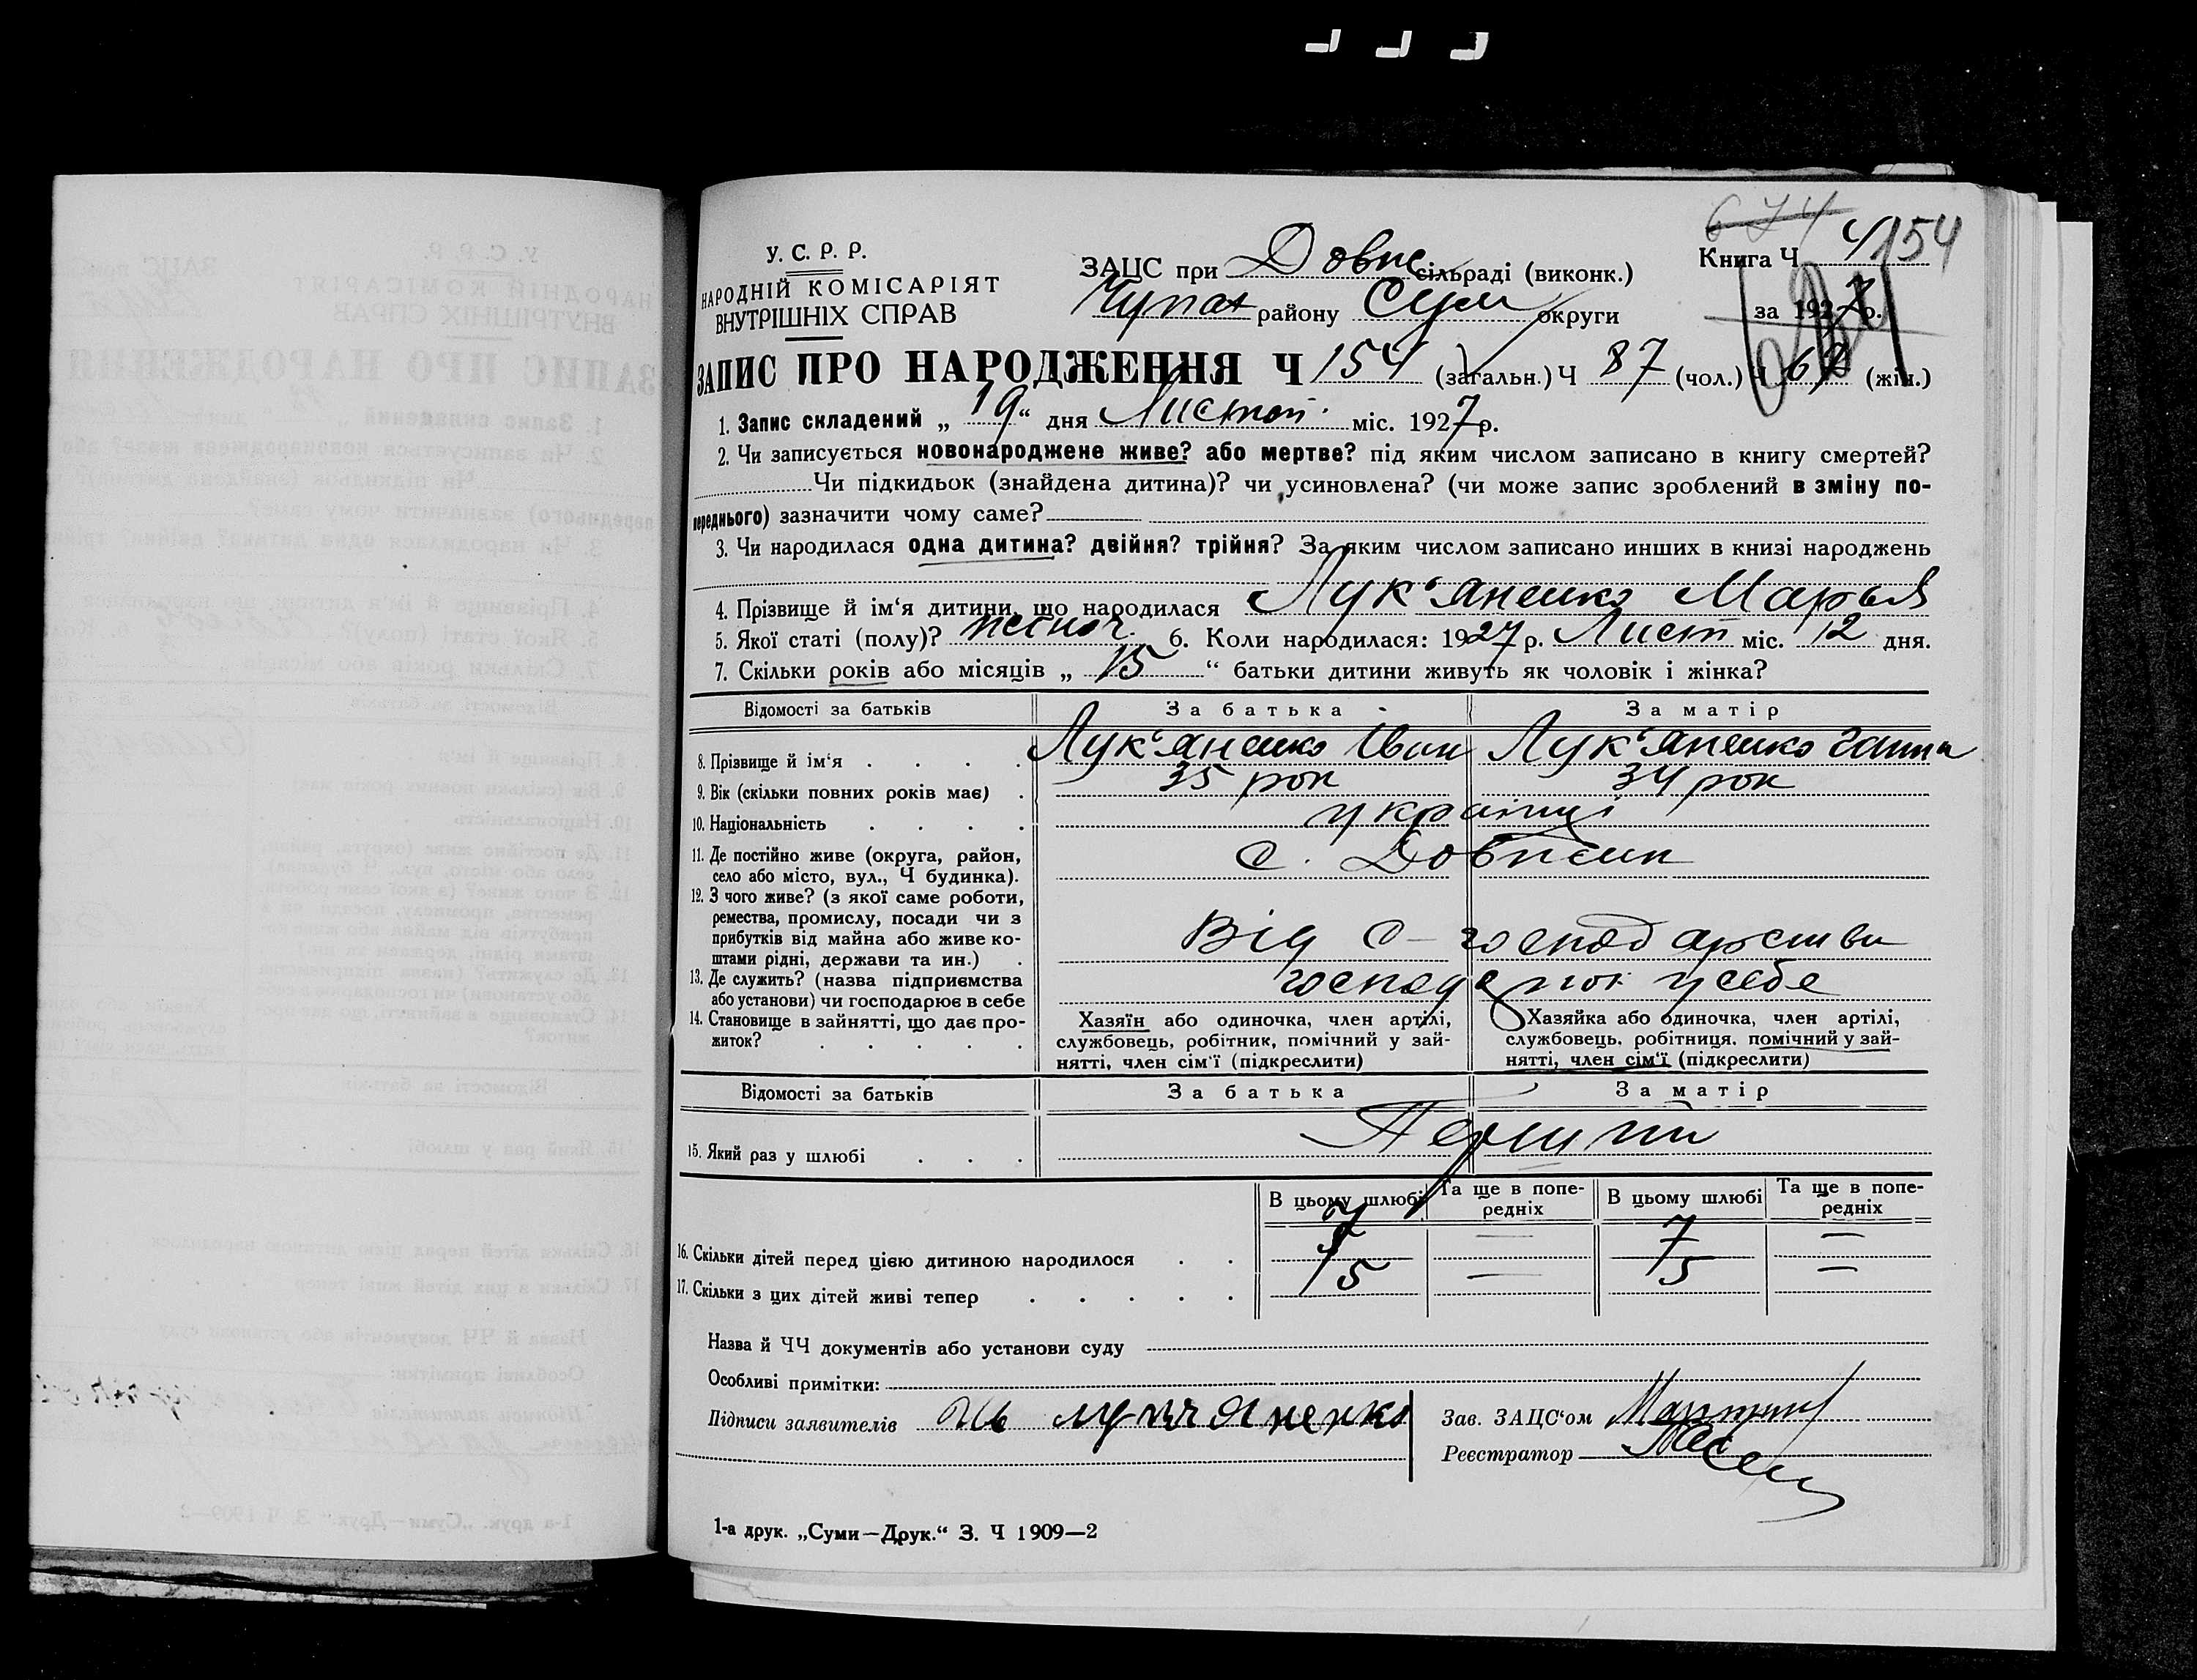 У. С. Р. Р.
НАРОДНІЙ КОМІСАРІЯТ
ВНУТРІШНІХ СПРАВ
ЗАЦС при Довж сільраді (виконк.)
Чупах району Сум округи
674
Книга Ч 4/154
за 1927 р.
ЗАПИС ПРО НАРОДЖЕННЯ Ч 154 (загальн.) Ч 87 (чол.) Ч 67 (жін.)
1. Запис складений „ 19 “ дня Листоп. міс. 1927 р.
2. Чи записується новонароджене живе? або мертве? під яким числом записано в книгу смертей?
Чи підкидьок (знайдена дитина)? чи усиновлена? (чи може запис зроблений в зміну по-
переднього) зазначити чому саме?
3. Чи народилася одна дитина? двійня? трійня? За яким числом записано инших в книзі народжень
4. Прізвище й ім‘я дитини, що народилася Лук‘яненко Марья
5. Якої статі (полу)? жіноч. 6. Коли народилася: 1927 р. Лист міс. 12 дня.
7. Скільки років або місяців „ 15 “ батьки дитини живуть як чоловік і жінка?
Відомості за батьків За батька За матір
8. Прізвище й ім‘я Лук‘яненко Іван Лук‘яненко Ганна
9. Вік (скільки повних років має) 35 рок 34 рок
10. Національність українці
11. Де постійно живе (округа, район,
село або місто, вул., Ч будинка). с.
12. З чого живе? (з якої саме роботи,
ремества, промислу, посади чи з
прибутків від майна або живе ко-
штами рідні, держави та ин.) Від с-господарства
13. Де служить? (назва підприємства
або установи) чи господарює в себе у себе
14. Становище в зайнятті, що дає про-
житок?
Хазяїн або одиночка, член артілі,
службовець, робітник, помічний у зай-
нятті, член сім‘ї (підкреслити)
Хазяйка або одиночка, член артілі,
службовець, робітниця, помічний у зай-
нятті, член сім‘ї (підкреслити)
Відомості за батьків За батька За матір
15. Який раз у шлюбі Перший
В цьому шлюбі Та ще в попе-
редніх В цьому шлюбі Та ще в попе-
редніх
16. Скільки дітей перед цією дитиною народилося 7 — 7 —
17. Скільки з цих дітей живі тепер 5 — 5 —
Назва й ЧЧ документів або установи суду
Особливі примітки:
Підписи заявителів
Зав. ЗАЦС‘ом
Реєстратор
1-а друк. „Суми—Друк.“ З. Ч 1909—2